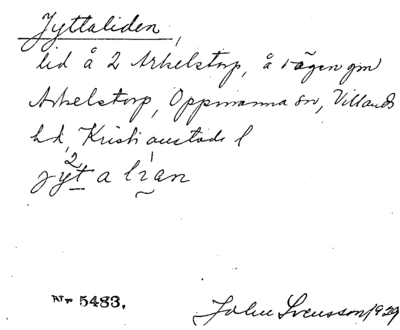 Jyttaliden,
lid å 2 Arkelstorp, å vägen gm
Arkelstorp, Oppmanna sn, Villands
hd, Kristianstads l
jy²t a lian
Nr 5483.
John Svensson 1929